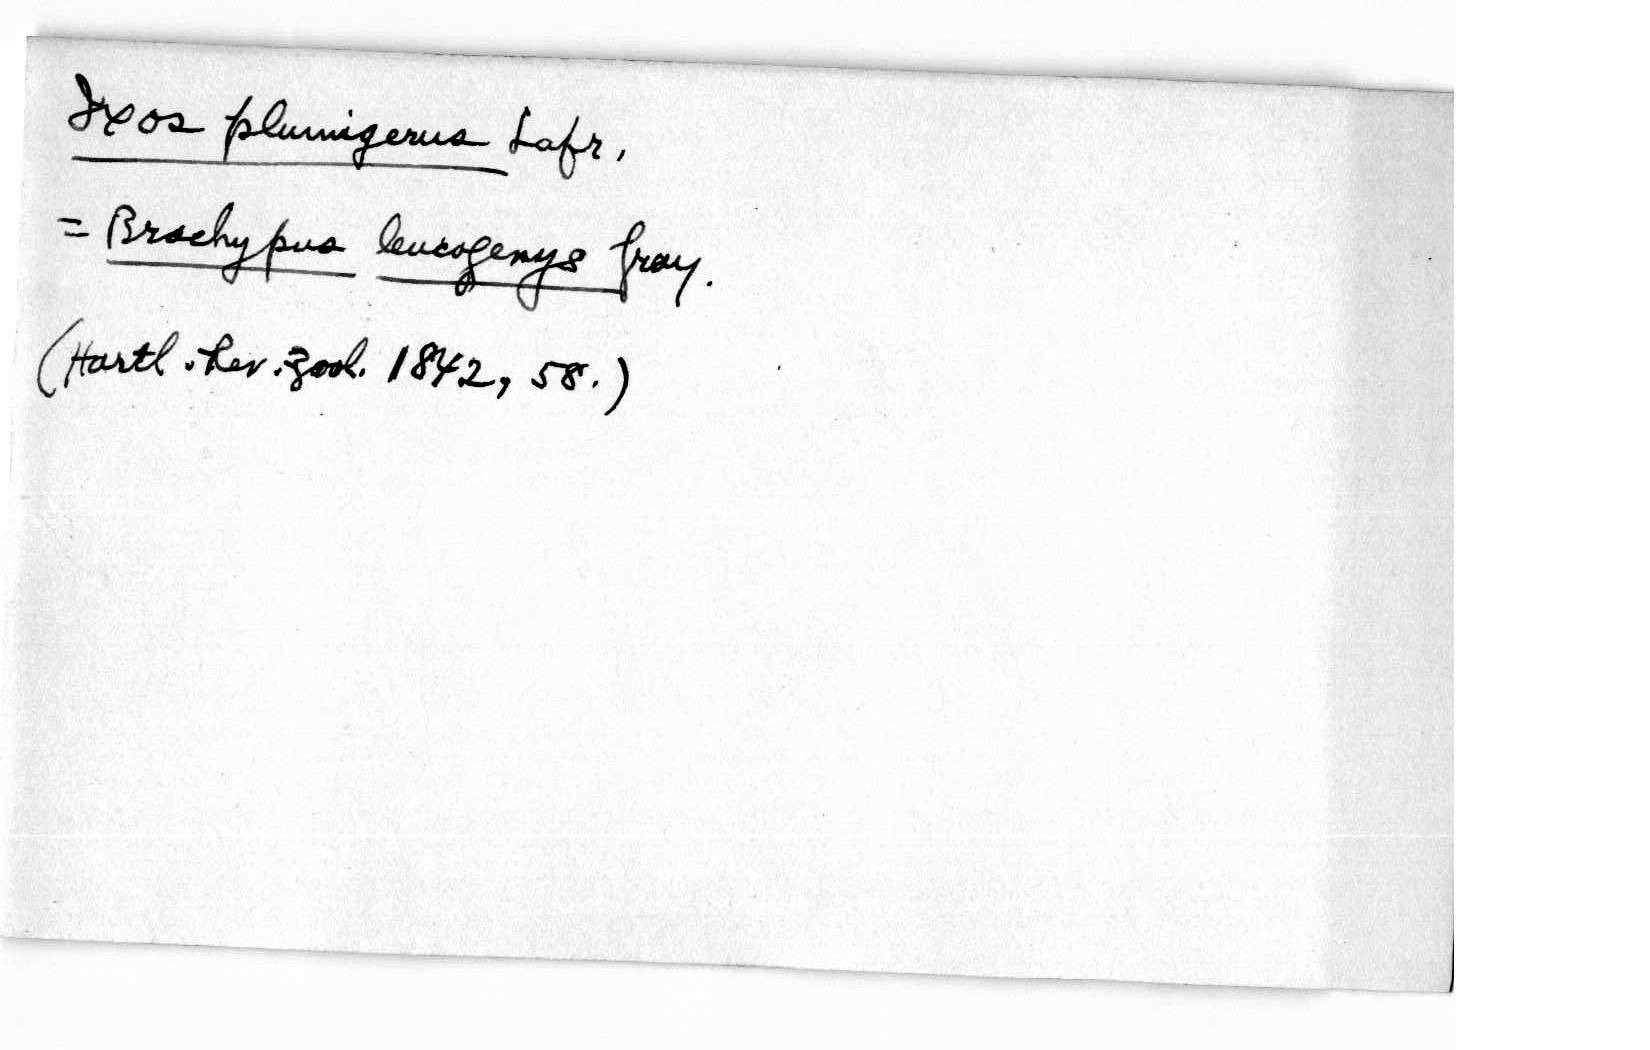 Ixos plumigerus Lafr.
= Brachypus leucogenys Gray.
(Hartl. Rev. Zool. 1842, 58.)